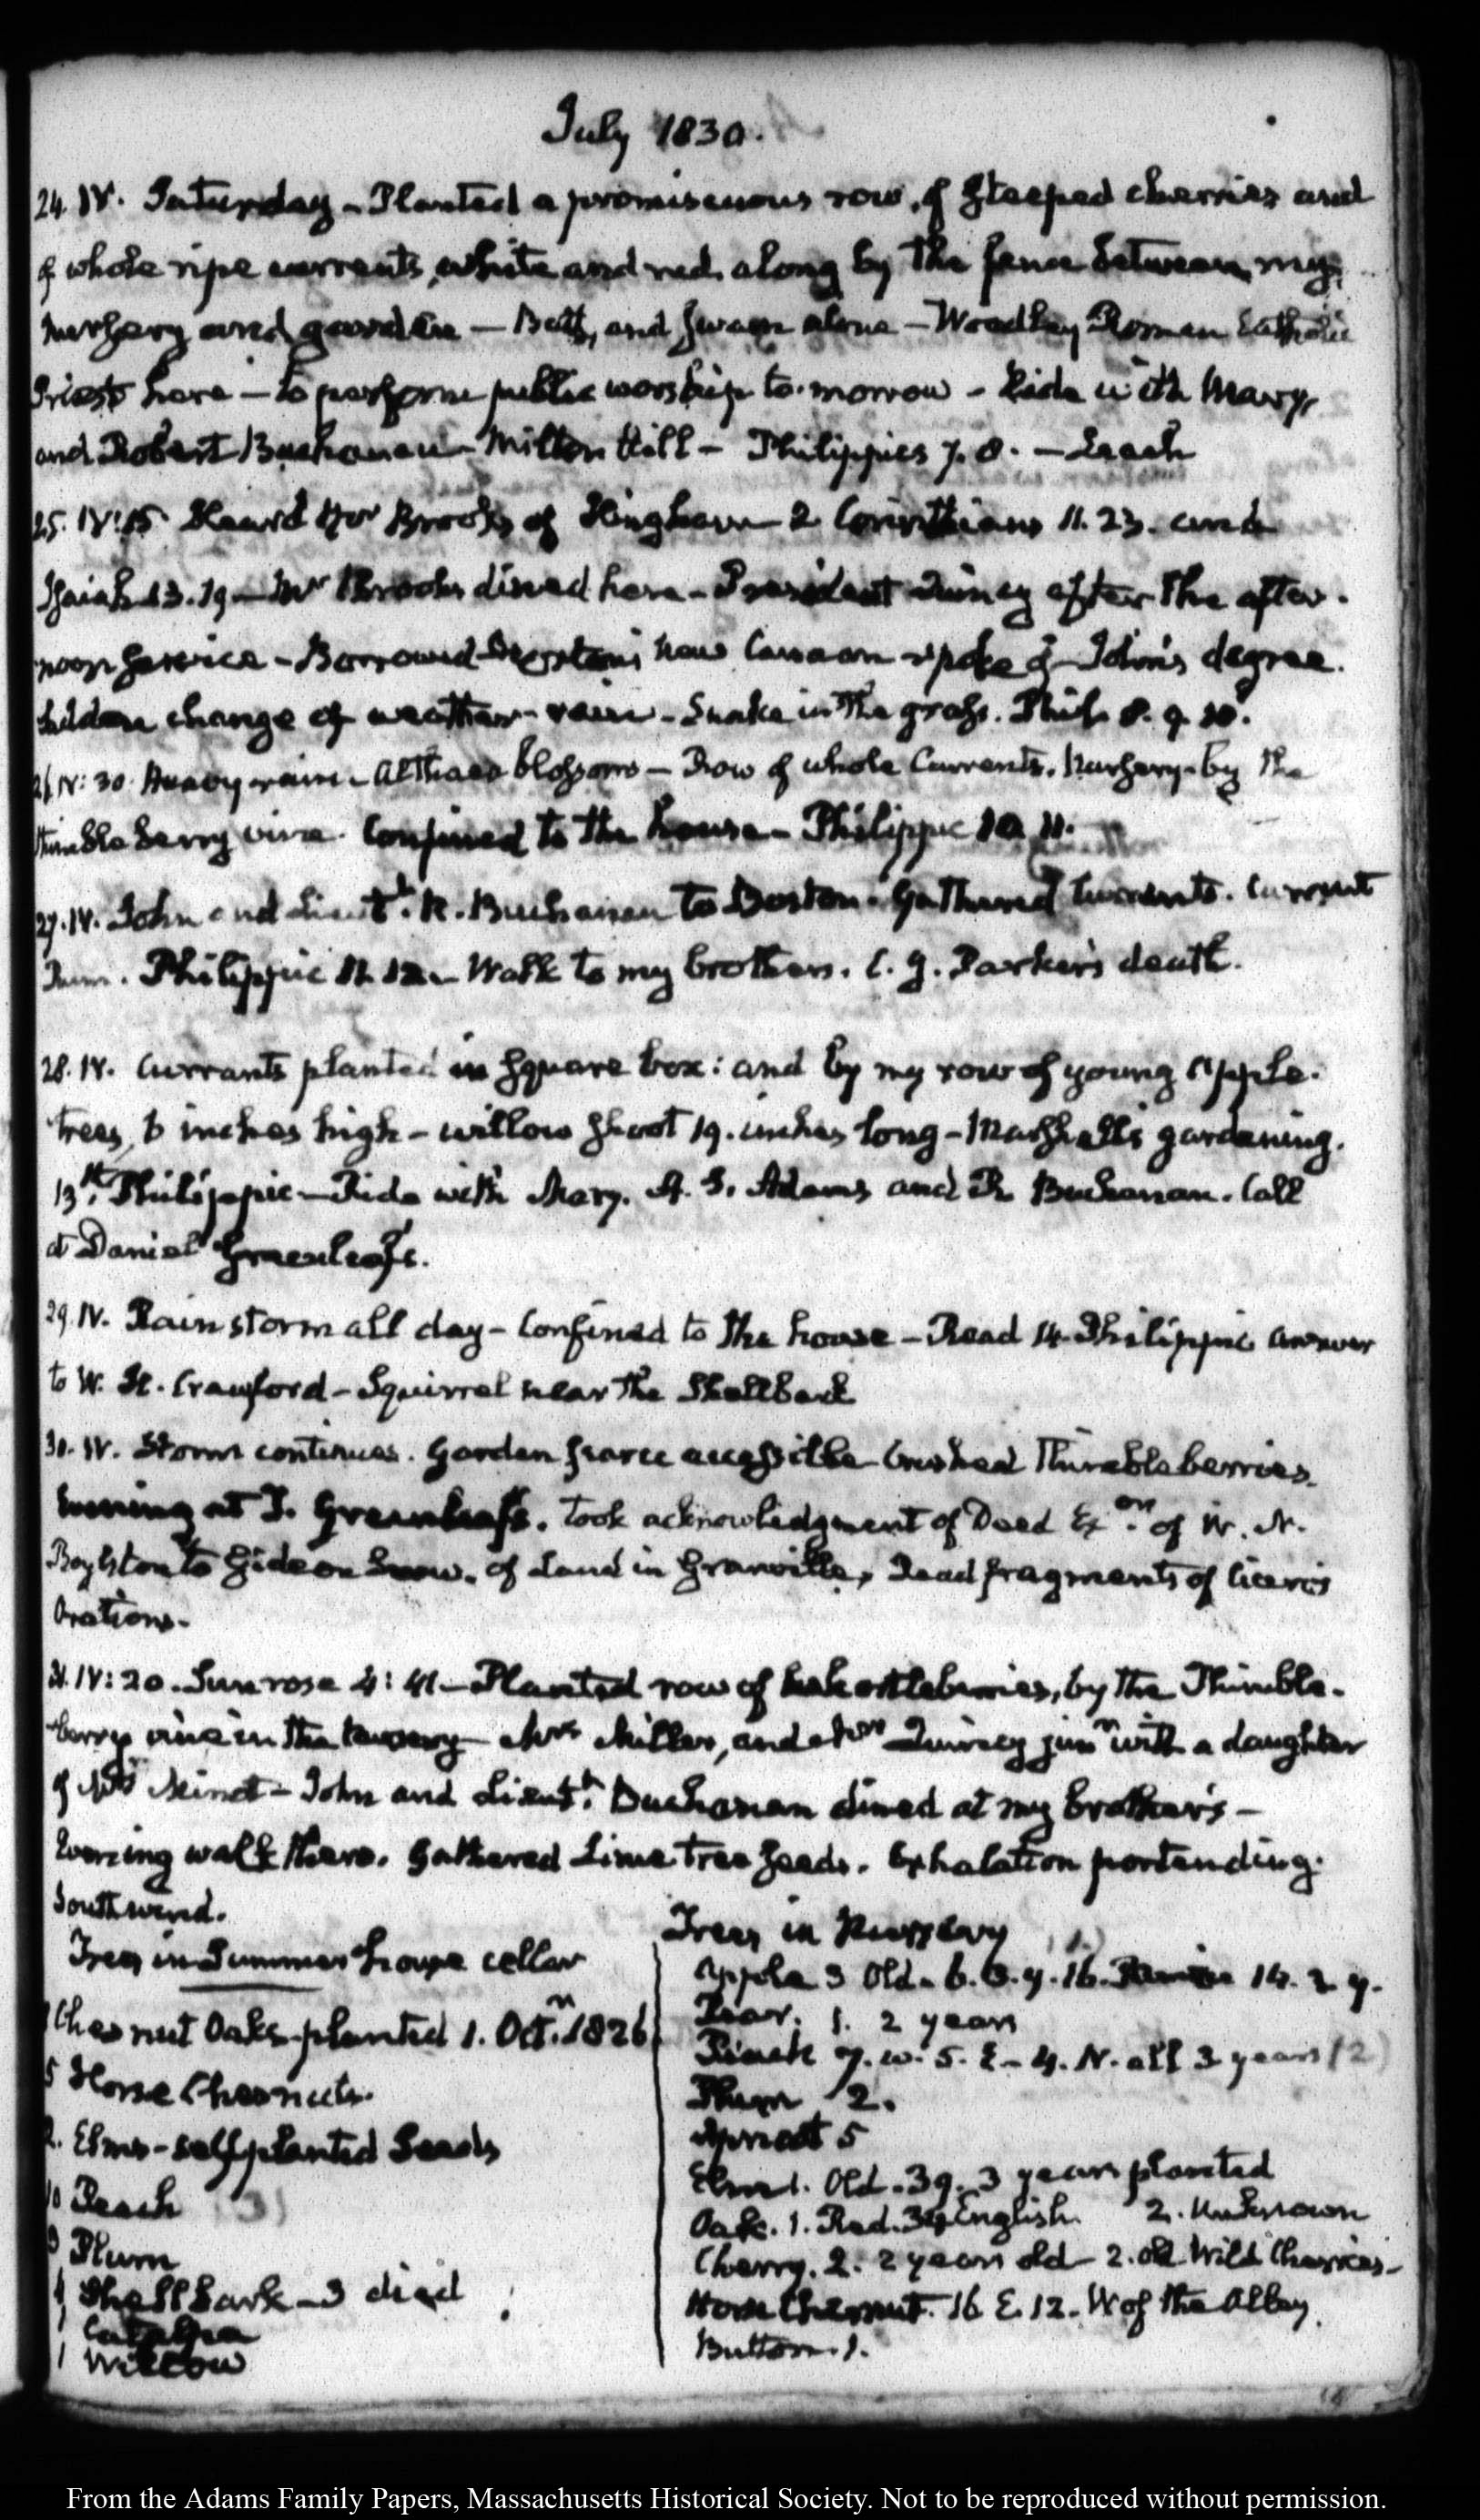 July 1830.
24. IV. Saturday - Planted a promiscuous row, of steeped cherries and
of whole ripe currants, white and red, along by the fence between my
nursery and garden — Bath, and swam alone — Woodley Roman Catholic
Priest here — to perform public worship to-morrow - Ride with Mary,
and Robert Buchanan - Milton Hill - Philippics 7. 8. —
25. IV:15. Heard Mr Brooks of Hingham - 2 Corinthians 11. 23. and
Isaiah 13. 19 — Mr Brooks dined here - President Quincy after the after-
noon service - Borrowed new Canaan spoke of John's degree.
Sudden change of weather - rain - Snake in the grass. Phil. 8. 9. 10.
26. IV: 30. Heavy rain - Althaea blossoms — Row of whole Currants. Nursery - by the
thimbleberry vine. Confined to the house - Philippic 10. 11.
27. IV. John and Lieutt. R. Buchanan to Boston. Gathered Currants. Currant
. Philippic 11. 12. - Walk to my brother's. C. G. Parker's death.
28. IV. Currants planted in square box: and by my row of young Apple-
trees, 6 inches high - willow shoot 19. inches long - Marshall's gardening.
13th. Philippic — Ride with Mary. A. S. Adams and R Buchanan. Call
at Daniel Greenleaf's.
29. IV. Rain storm all day - Confined to the house - Read 14 Philippic answer
to W. H. Crawford - Squirrel near the Shellbark
30. IV. Storm continues. Garden scarce accessible crushed Thimbleberries.
Evening at T. Greenleaf's. Took acknowledgment of Deed Exon. of W. N.
Boylston to Gideon Snow. of Land in Granville, Read fragments of Cicero's
Orations-
31. IV: 20. Sun rose 4: 41 — Planted row of whortleberries, by the Thimble-
berry vine in the nursery - Mrs Miller, and Mrs Quincy junr with a daughter
of Mrs Minot - John and Lieutt. Buchanan dined at my brother's -
Evening walk there. Gathered Lime tree seeds. Exhalation portending
South wind.
Trees in Summer house cellar
Chesnut Oaks planted 1. Octr. 1826
5 Horse Chesnuts.
2. Elms - self planted Seeds
10 Peach (3)
Plum
4 Shellbark - 3 died
1 Catalpa
1 Willow
Trees in Nursery
Apple 3 Old - 6. 3. y. 16. 14. 2 y.
Pear. 1. 2 years
Peach 7. W. 5. E - 4. N. all 3 years (2)
Plum 2.
Apricot 5
Elm 1. Old. 39. 3 years planted
Oak. 1. Red. 34 English. 2. Unknown
Cherry. 2. 2 years old - 2. old Wild Cherries -
Horse Chesnut. 16 E. 12. W of the Alley
Button. 1.
From the Adams Family Papers, Massachusetts Historical Society. Not to be reproduced without permission.